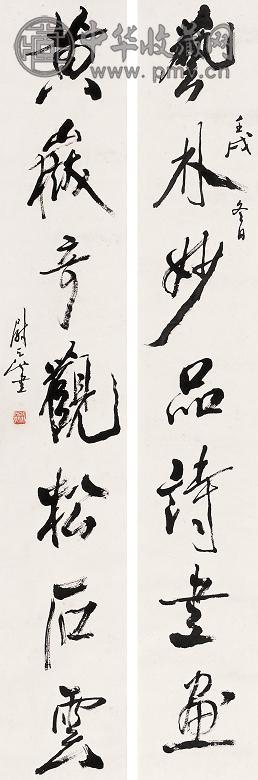 中华收藏网
www.pmv.cn
藝林妙品詩書畫
壬戌冬日
黃嶽奇觀松石雲
尉天池書